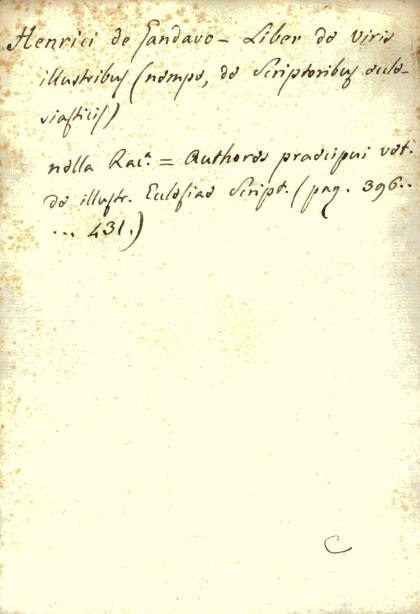 Henrici de Gandavo - Liber de viris
illustribus (nempe, de Scriptoribus eccle-
siasticis)
nella Rac.ª = Authores praecipui vet.
de illustr. Ecclesiae Script. (pag. 396..
... 431.)
C